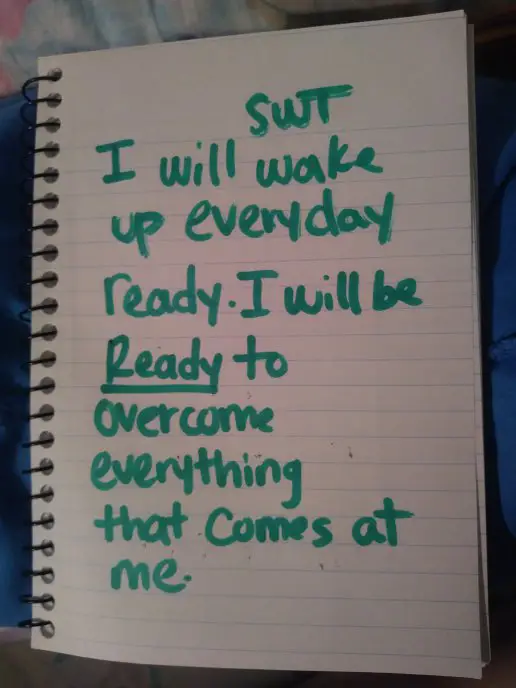 SWT
I will wake
up everyday
ready. I will be
Ready to
overcome
everything
that comes at
me.